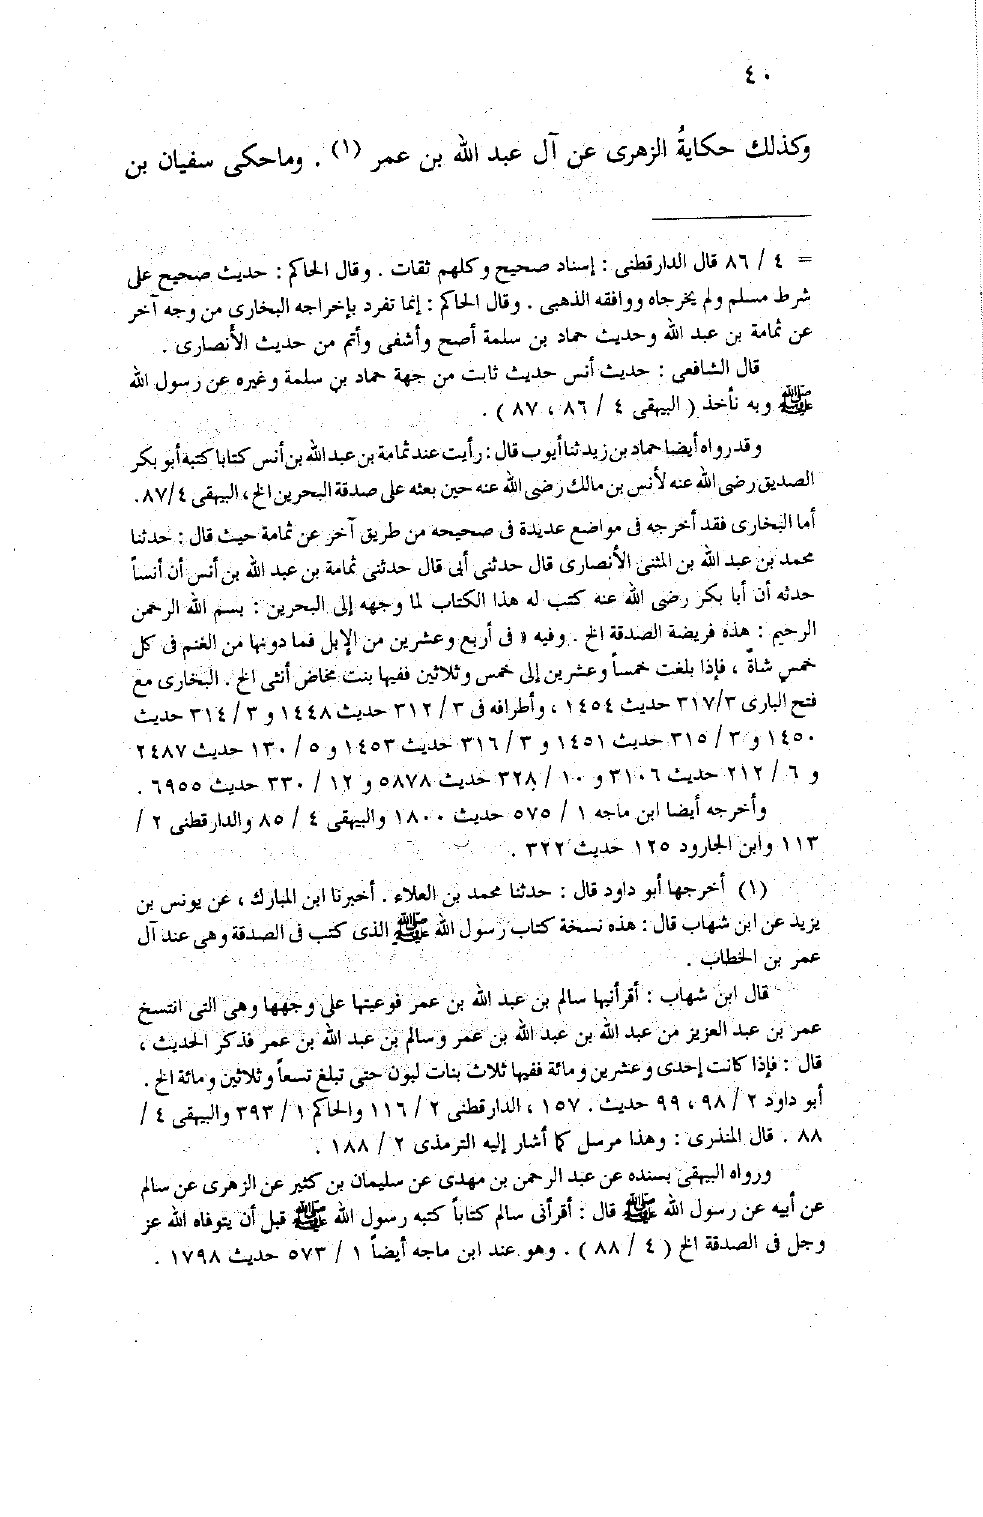 ٤٠
وكذلك حكايةُ الزهرى عن آل عبد الله بن عمر (١) . وماحكى سفيان بن
= ٤ / ٨٦ قال الدارقطنى : إسناد صحيح وكلهم ثقات . وقال الحاكم : حديث صحيح على
شرط مسلم ولم يخرجاه ووافقه الذهبى . وقال الحاكم : إنما تفرد بإخراجه البخارى من وجه آخر
عن ثمامة بن عبد الله وحديث حماد بن سلمة أصح وأشفى وأتم من حديث الأنصارى .
قال الشافعى : حديث أنس حديث ثابت من جهة حماد بن سلمة وغيره عن رسول الله
ﷺ وبه نأخذ ( البيهقى ٤ / ٨٦ ، ٨٧ ) .
وقد رواه أيضا حماد بن زيد ثنا أيوب قال : رأيت عند ثمامة بن عبد الله بن أنس كتابا كتبه أبو بكر
الصديق رضى الله عنه لأنس بن مالك رضى الله عنه حين بعثه على صدقة البحرين الخ ، البيهقى ٤/ ٨٧.
أما البخارى فقد أخرجه فى مواضع عديدة فى صحيحه من طريق آخر عن ثمامة حيث قال : حدثنا
محمد بن عبد الله بن المثنى الأنصارى قال حدثنى أبى قال حدثنى ثمامة بن عبد الله بن أنس أن أنساً
حدثه أن أبا بكر رضى الله عنه كتب له هذا الكتاب لما وجهه إلى البحرين : بسم الله الرحمن
الرحيم : هذه فريضة الصدقة الخ . وفيه « فى أربع وعشرين من الإبل فما دونها من الغنم فى كل
خمسٍ شاةٌ ، فإذا بلغت خمساً وعشرين إلى خمس وثلاثين ففيها بنت مخاض أنثى الخ . البخارى مع
فتح البارى ٣/ ٣١٧ حديث ١٤٥٤ ، وأطرافه فى ٣ / ٣١٢ حديث ١٤٤٨ و ٣ / ٣١٤ حديث
١٤٥٠ و ٣ / ٣١٥ حديث ١٤٥١ و ٣ / ٣١٦ حديث ١٤٥٣ و ٥ / ١٣٠ حديث ٢٤٨٧
و ٦ / ٢١٢ حديث ٣١٠٦ و ١٠ / ٣٢٨ حديث ٥٨٧٨ و ١٢ / ٣٣٠ حديث ٦٩٥٥ .
وأخرجه أيضا ابن ماجه ١ / ٥٧٥ حديث ١٨٠٠ والبيهقى ٤ / ٨٥ والدارقطنى ٢ /
١١٣ وابن الجارود ١٢٥ حديث ٣٢٢ .
(١) أخرجها أبو داود قال : حدثنا محمد بن العلاء . أخبرنا ابن المبارك ، عن يونس بن
يزيد عن ابن شهاب قال : هذه نسخة كتاب رسول الله ﷺ الذى كتب فى الصدقة وهى عند آل
عمر بن الخطاب .
قال ابن شهاب : أقرأنيها سالم بن عبد الله بن عمر فوعيتها على وجهها وهى التى انتسخ
عمر بن عبد العزيز من عبد الله بن عبد الله بن عمر وسالم بن عبد الله بن عمر فذكر الحديث ،
قال : فإذا كانت إحدى وعشرين ومائة ففيها ثلاث بنات لبون حتى تبلغ تسعاً وثلاثين ومائة الخ .
أبو داود ٢ / ٩٨ ، ٩٩ حديث . ١٥٧ ، الدارقطنى ٢ / ١١٦ والحاكم ١ / ٣٩٣ والبيهقى ٤ /
٨٨ . قال المنذرى : وهذا مرسل كما أشار إليه الترمذى ٢ / ١٨٨ .
ورواه البيهقى بسنده عن عبد الرحمن بن مهدى عن سليمان بن كثير عن الزهرى عن سالم
عن أبيه عن رسول الله ﷺ قال : أقرأنى سالم كتاباً كتبه رسول الله ﷺ قبل أن يتوفاه الله عز
وجل فى الصدقة الخ ( ٤ / ٨٨ ) . وهو عند ابن ماجه أيضاً ١ / ٥٧٣ حديث ١٧٩٨ .